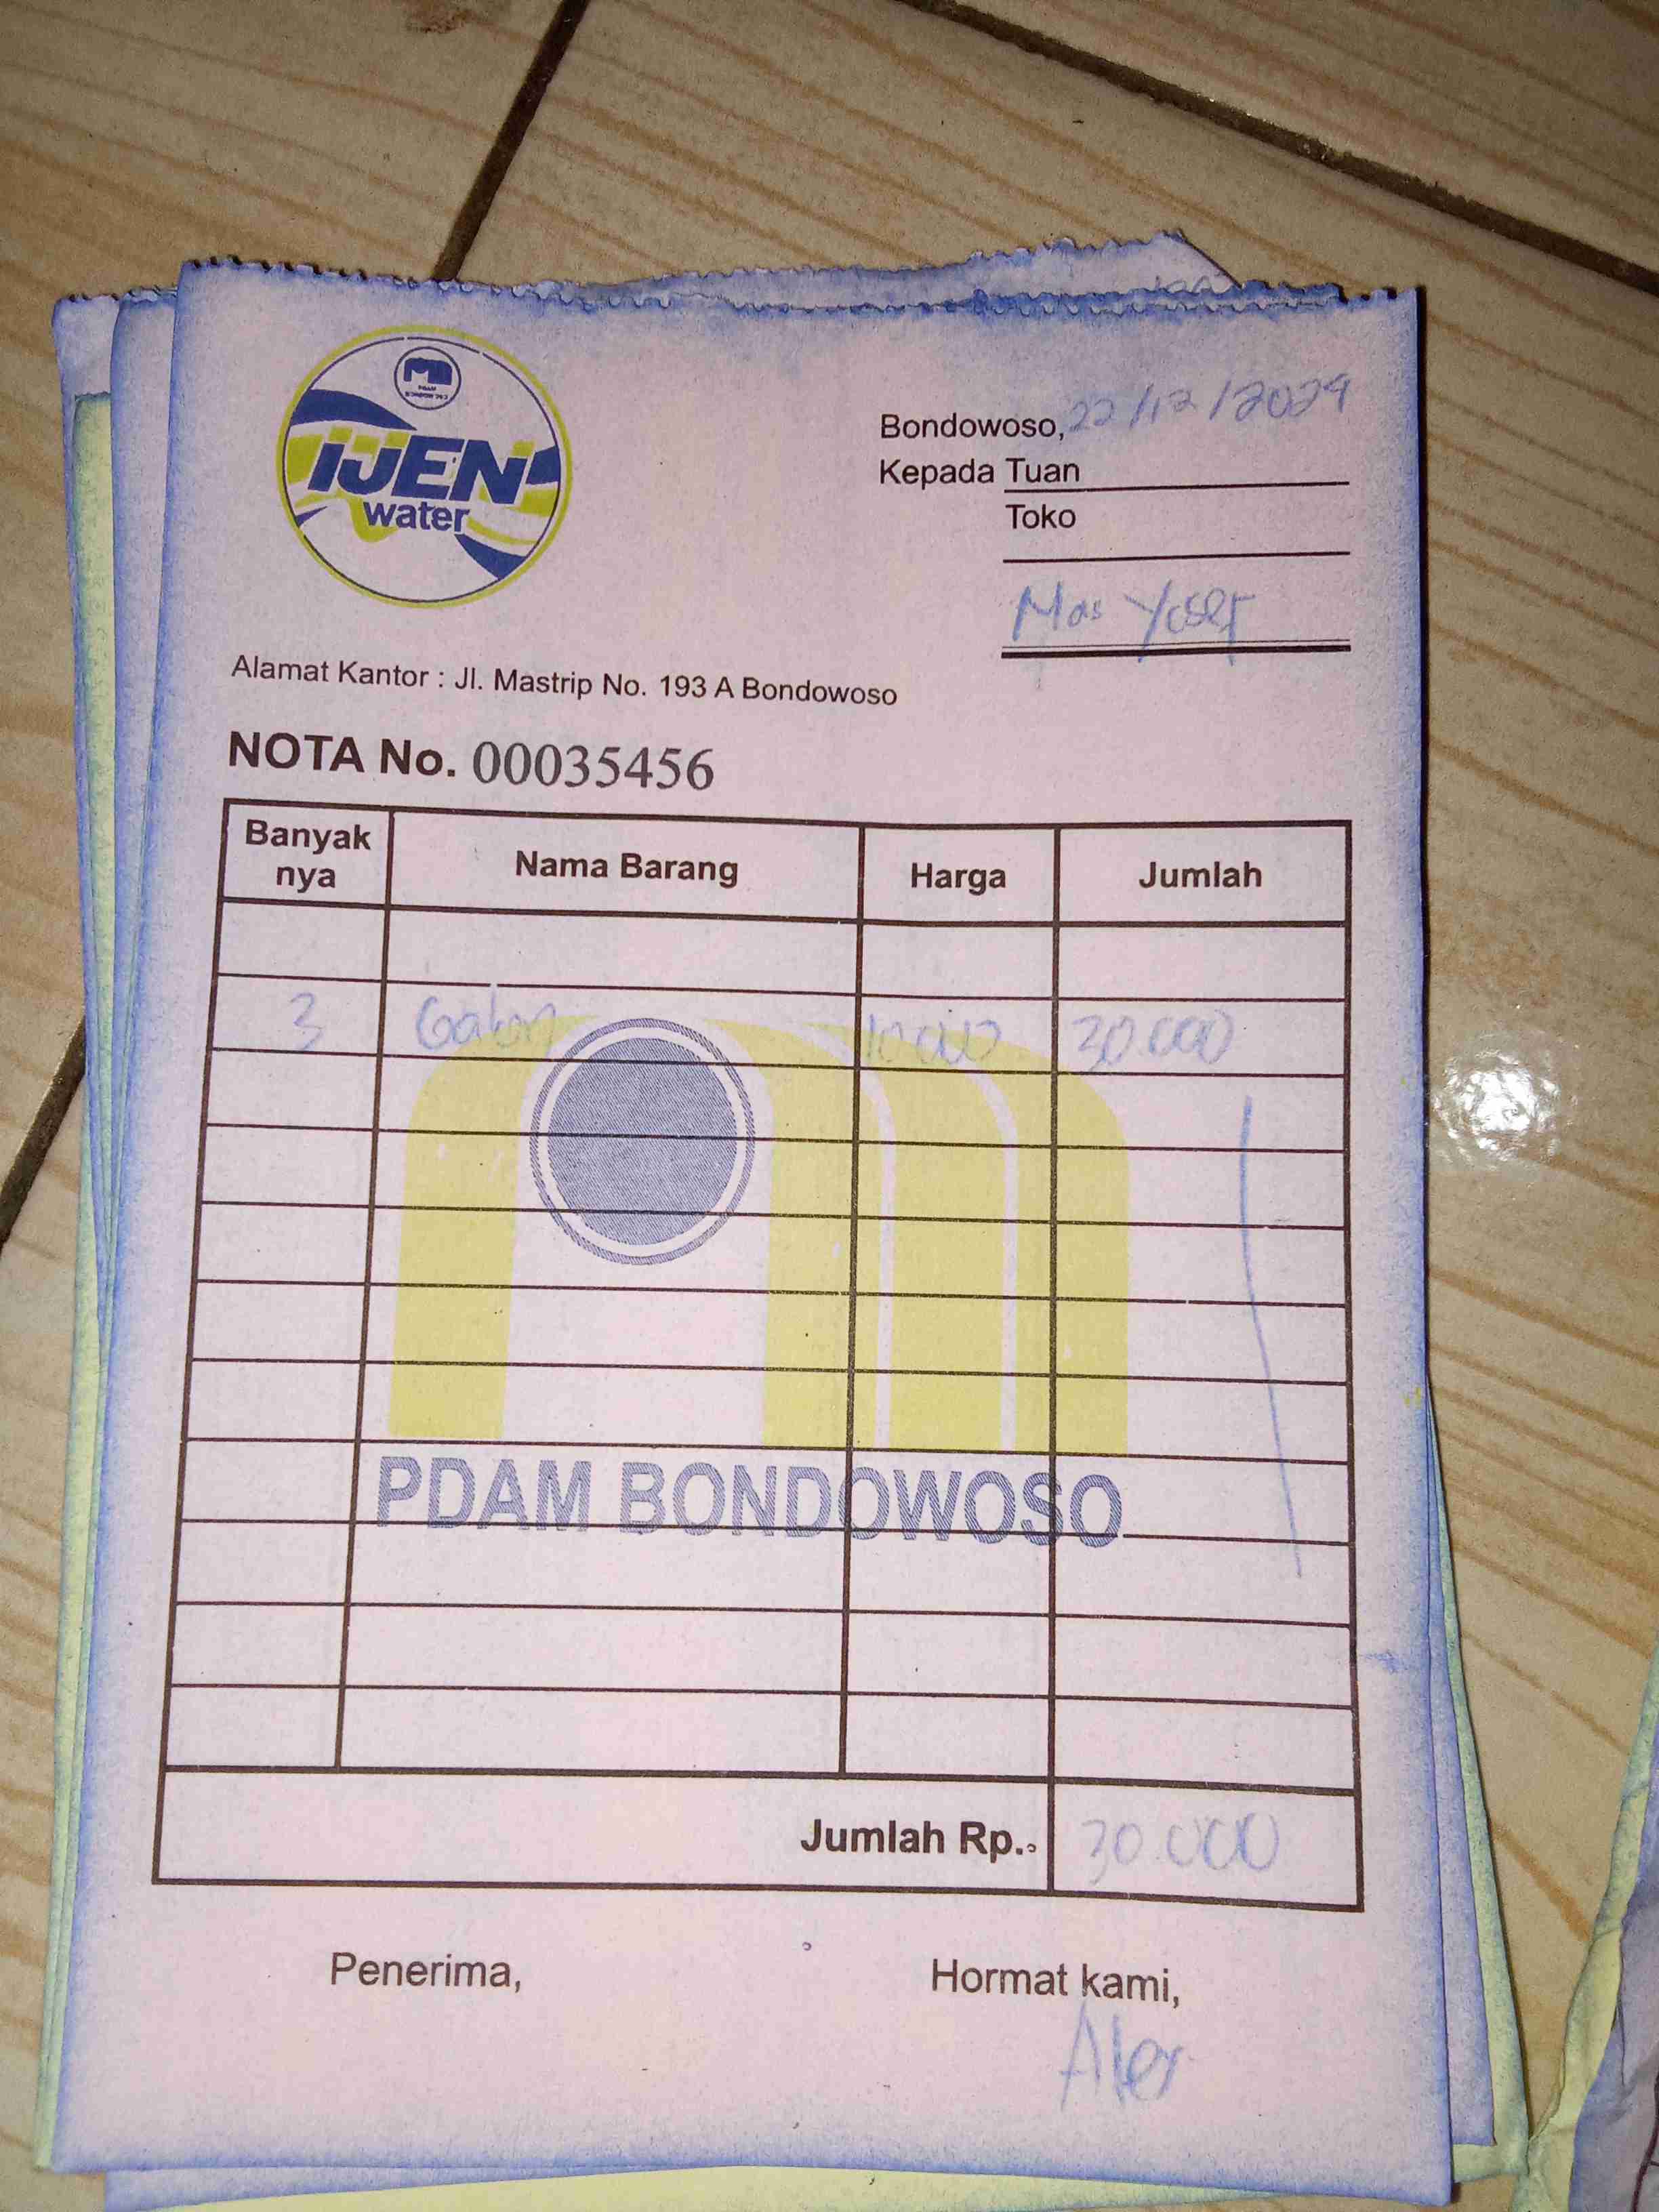 IJEN
water
Bondowoso, 22/12/2024
Kepada Tuan
Toko
Mas Yosef
Alamat Kantor : Jl. Mastrip No. 193 A Bondowoso
NOTA No. 00035456
Banyak nya Nama Barang Harga Jumlah
3 Galon 10.000 30.000
PDAM BONDOWOSO
Jumlah Rp. 30.000
Penerima, Hormat kami,
Alex